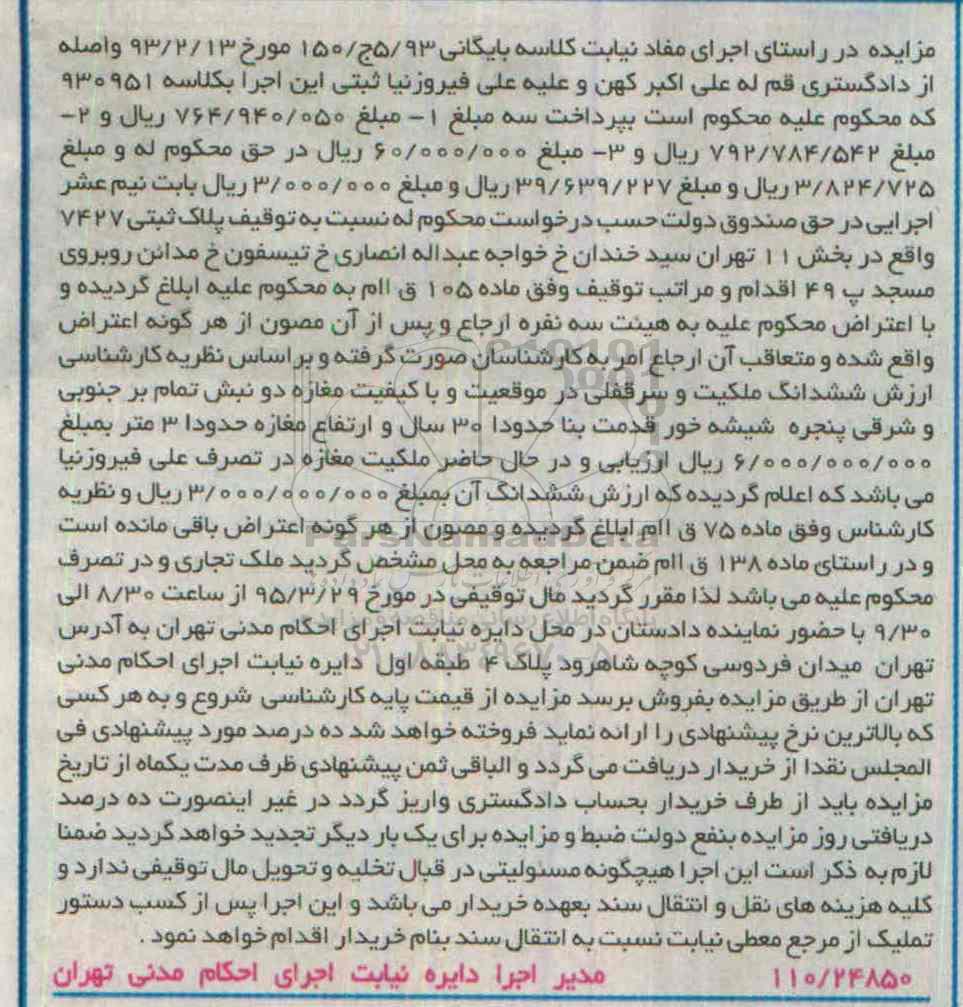 مزایده در راستای اجرای مفاد نیابت کلاسه بایگانی ۵/۹۳ج/۱۵۰ مورخ ۹۳/۲/۱۳ واصله
از دادگستری قم له علی اکبر کهن و علیه علی فیروزنیا ثبتی این اجرا بکلاسه ۹۳۰۹۵۱
که محکوم علیه محکوم است بپرداخت سه مبلغ ۱- مبلغ ۷۶۴/۹۴۰/۰۵۰ ریال و ۲-
مبلغ ۷۹۲/۷۸۴/۵۴۲ ریال و ۳- مبلغ ۶۰/۰۰۰/۰۰۰ ریال در حق محکوم له و مبلغ
۳/۸۲۴/۷۲۵ ریال و مبلغ ۳۹/۶۳۹/۲۲۷ ریال و مبلغ ۳/۰۰۰/۰۰۰ ریال بابت نیم عشر
اجرایی در حق صندوق دولت حسب درخواست محکوم له نسبت به توقیف پلاک ثبتی ۷۴۲۷
واقع در بخش ۱۱ تهران سید خندان خ خواجه عبداله انصاری خ تیسفون خ مدائن روبروی
مسجد پ ۴۹ اقدام و مراتب توقیف وفق ماده ۱۰۵ ق اام به محکوم علیه ابلاغ گردیده و
با اعتراض محکوم علیه به هیئت سه نفره ارجاع و پس از آن مصون از هر گونه اعتراض
واقع شده و متعاقب آن ارجاع امر به کارشناسان صورت گرفته و بر اساس نظریه کارشناسی
ارزش ششدانگ ملکیت و سرقفلی در موقعیت و با کیفیت مغازه دو نبش تمام بر جنوبی
و شرقی پنجره شیشه خور قدمت بنا حدودا ۳۰ سال و ارتفاع مغازه حدودا ۳ متر بمبلغ
۶/۰۰۰/۰۰۰/۰۰۰ ریال ارزیابی و در حال حاضر ملکیت مغازه در تصرف علی فیروزنیا
می باشد که اعلام گردیده که ارزش ششدانگ آن بمبلغ ۳/۰۰۰/۰۰۰/۰۰۰ ریال و نظریه
کارشناس وفق ماده ۷۵ ق اام ابلاغ گردیده و مصون از هر گونه اعتراض باقی مانده است
و در راستای ماده ۱۳۸ ق اام ضمن مراجعه به محل مشخص گردید ملک تجاری و در تصرف
محکوم علیه می باشد لذا مقرر گردید مال توقیفی در مورخ ۹۵/۳/۲۹ از ساعت ۸/۳۰ الی
۹/۳۰ با حضور نماینده دادستان در محل دایره نیابت اجرای احکام مدنی تهران به آدرس
تهران میدان فردوسی کوچه شاهرود پلاک ۴ طبقه اول دایره نیابت اجرای احکام مدنی
تهران از طریق مزایده بفروش برسد مزایده از قیمت پایه کارشناسی شروع و به هر کسی
که بالاترین نرخ پیشنهادی را ارائه نماید فروخته خواهد شد ده درصد مورد پیشنهادی فی
المجلس نقدا از خریدار دریافت می گردد و الباقی ثمن پیشنهادی ظرف مدت یکماه از تاریخ
مزایده باید از طرف خریدار بحساب دادگستری واریز گردد در غیر اینصورت ده درصد
دریافتی روز مزایده بنفع دولت ضبط و مزایده برای یک بار دیگر تجدید خواهد گردید ضمنا
لازم به ذکر است این اجرا هیچگونه مسئولیتی در قبال تخلیه و تحویل مال توقیفی ندارد و
کلیه هزینه های نقل و انتقال سند بعهده خریدار می باشد و این اجرا پس از کسب دستور
تملیک از مرجع معطی نیابت نسبت به انتقال سند بنام خریدار اقدام خواهد نمود .
۱۱۰/۲۴۸۵۰ مدیر اجرا دایره نیابت اجرای احکام مدنی تهران
ParsNamadData